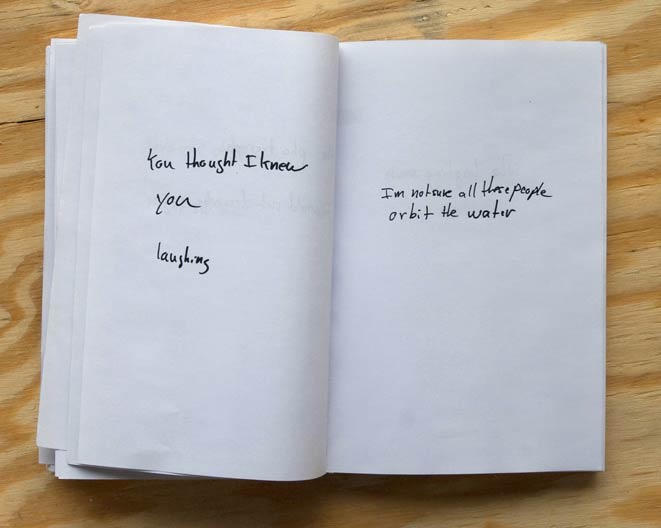 You thought I knew
you
laughing
I'm not sure all these people
orbit the water